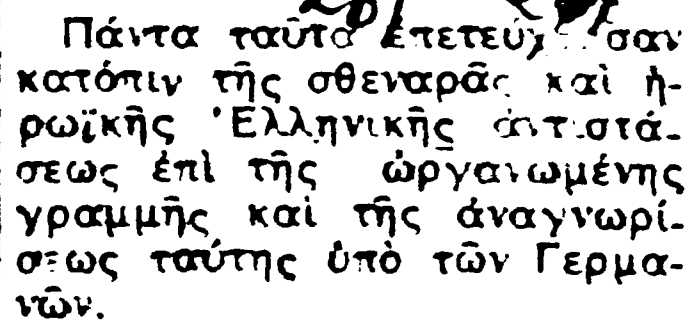 Πάντα ταῦτα ἐπετεύχθησαν
κατόπιν τῆς σθεναρᾶς καὶ ἡ-
ρωϊκῆς Ἑλληνικῆς ἀντιστά-
σεως ἐπὶ τῆς ὠργανωμένης
γραμμῆς καὶ τῆς ἀναγνωρί-
σεως ταύτης ὑπὸ τῶν Γερμα-
νῶν.